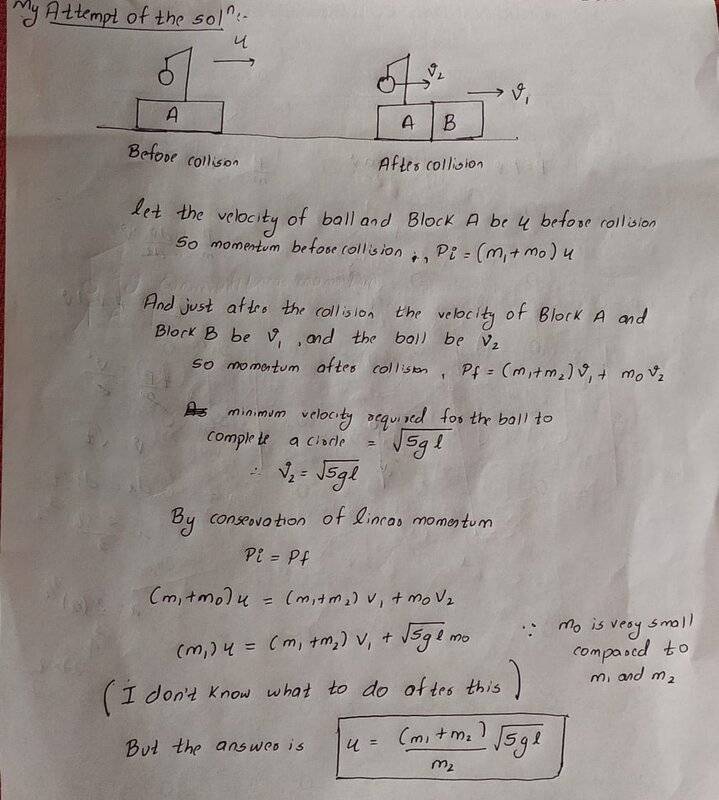 My Attempt of the solⁿ:-
u
A
Before collison
v₂
v₁
A B
After collision
let the velocity of ball and Block A be u before collision
so momentum before collision ;, Pi = (m₁+m₀) u
And just after the collision the velocity of Block A and
Block B be v₁, and the ball be v₂
so momentum after collision, Pf = (m₁+m₂) v₁ + m₀ v₂
minimum velocity required for the ball to
complete a circle = √5gl
∴ v₂ = √5gl
By conservation of linear momentum
Pi = Pf
(m₁+m₀) u = (m₁+m₂) v₁ + m₀ v₂
(m₁) u = (m₁+m₂) v₁ + √5gl m₀
∵ m₀ is very small
compared to
m₁ and m₂
(I don't know what to do after this)
But the answer is u = (m₁+m₂)/m₂ √5gl